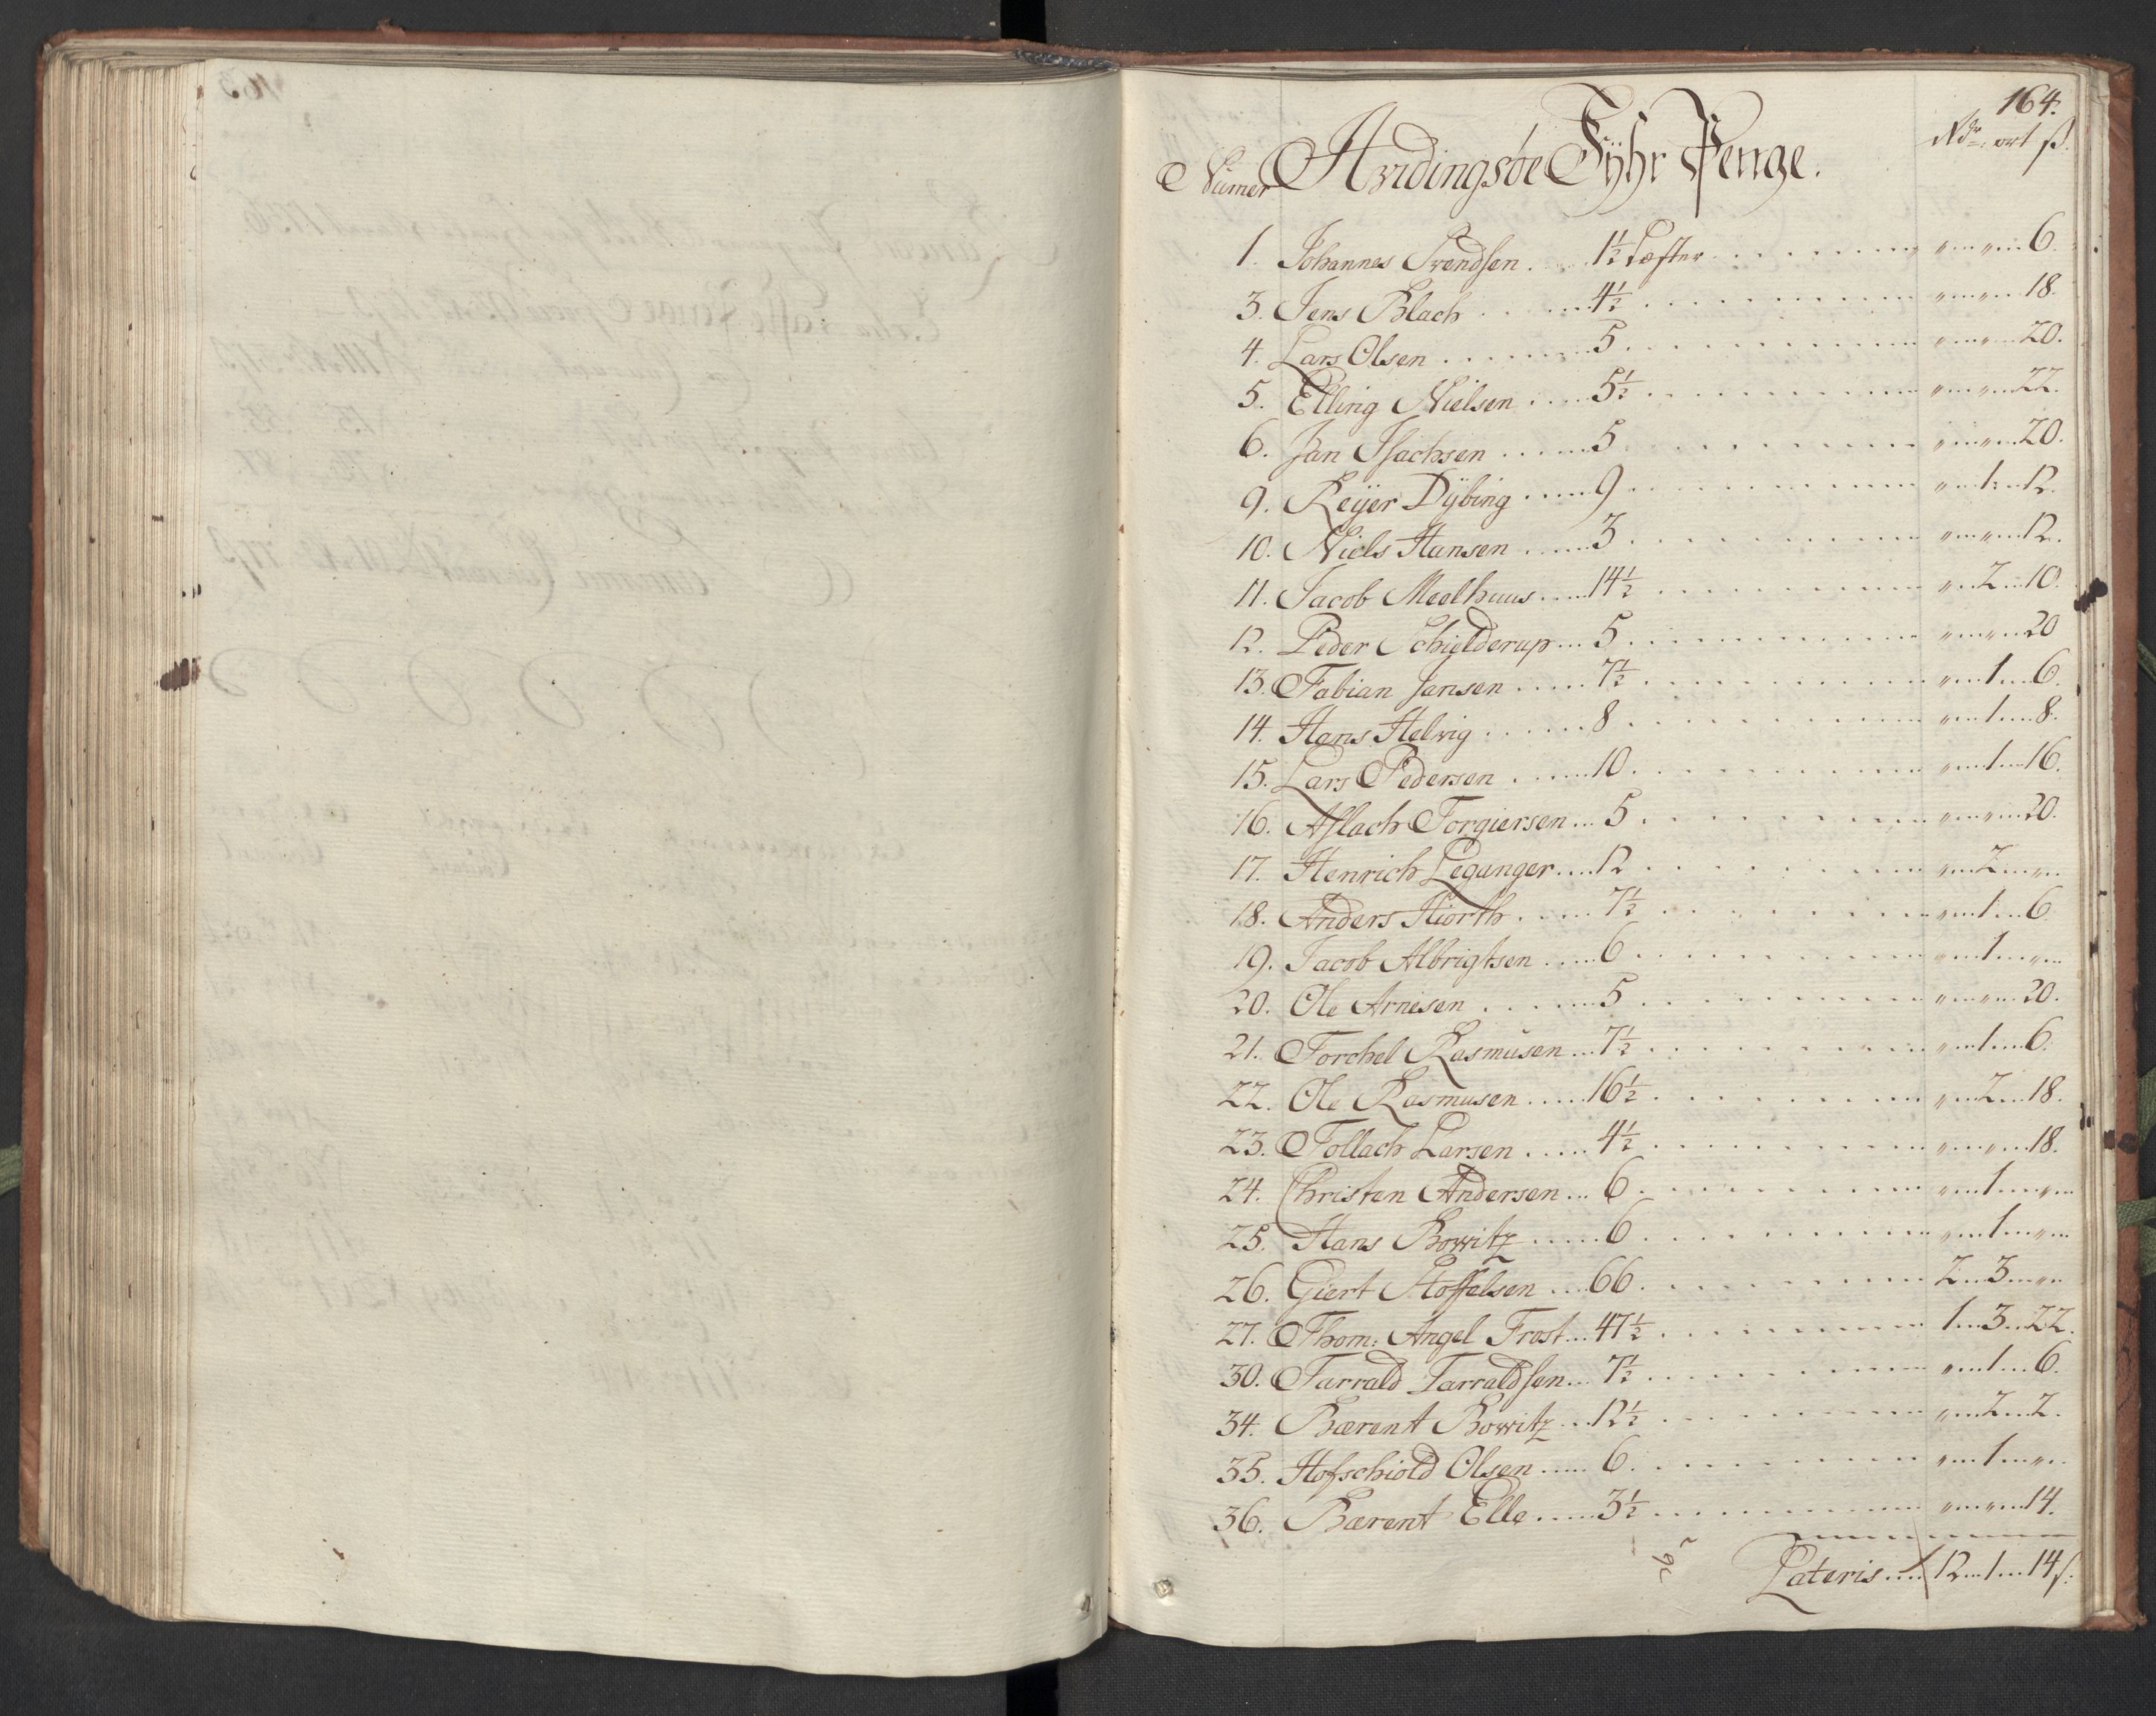 164.
Numer Hvidingsøe Fÿhr Penge. Rdr. ort ß.
1. Johannes Svendsen . . 1½ Læster . . . . . . " " 6.
3. Jens Blach . . . . 4½ . . . . . . " " 18.
4. Lars Olsen . . . . 5 . . . . . . " " 20.
5. Elling Nielsen . . . . 5½ . . . . . . " " 22.
6. Jan Isachsen . . . . 5 . . . . . . " " 20.
9. Reÿer Dÿbing . . . . 9 . . . . . . " 1 12.
10. Niels Hansen . . . . 3 . . . . . . " " 12.
11. Jacob Meelhuus . . . . 14½ . . . . . . " 2 10.
12. Peder Schielderup . . . 5 . . . . . . " " 20
13. Fabian Jansen . . . . 7½ . . . . . . " 1 6.
14. Hans Helvig . . . . 8 . . . . . . " 1 8.
15. Lars Pedersen . . . . 10 . . . . . . " 1 16.
16. Aslach Torgiersen . . . 5 . . . . . . " " 20.
17. Henrich Leganger . . . . 12 . . . . . . " 2 "
18. Anders Hiorth . . . . 7½ . . . . . . " 1 6.
19. Jacob Albrigtsen . . . . 6 . . . . . . " 1 "
20. Ole Arnesen . . . . 5 . . . . . . " " 20.
21. Torchel Rasmusen . . . 7½ . . . . . . " 1 6.
22. Ole Rasmusen . . . . 16½ . . . . . . " 2 18.
23. Tollach Larsen . . . . 4½ . . . . . . " " 18.
24. Christen Andersen . . . 6 . . . . . . " 1 "
25. Hans Bowitz . . . . 6 . . . . . . " 1 "
26. Giert Stoffelsen . . . . 66 . . . . . . 2 3 "
27. Thom: Angel Frost . . . 47½ . . . . . . 1 3 22.
30. Tarrald Tarraldsen . . . 7½ . . . . . . " 1 6.
34. Bærent Bowitz . . . 12½ . . . . . . " 2 2.
35. Hofschiold Olsen . . . . 6 . . . . . . " 1 "
36. Bærent Elle . . . . 3½ . . . . . . " " 14.
Lateris . . . . 12 1 14 ß.